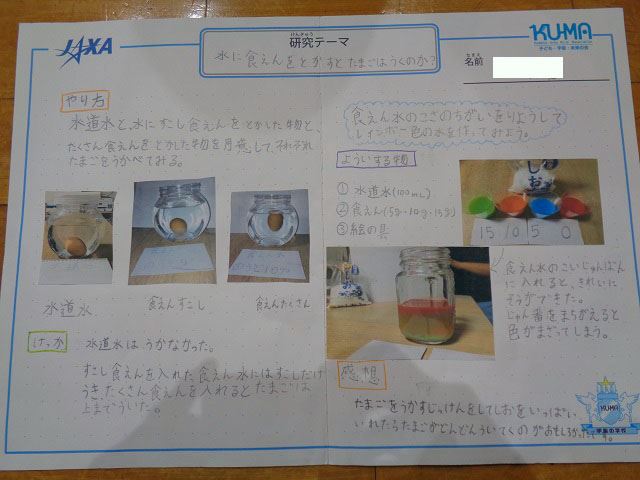 JAXA
けんきゅう
研究テーマ
水に食えんをとかすとたまごはうくのか?
KUMA
子ども・宇宙・未来の会
なまえ
名前
やり方
水道水と、水にすこし食えんをとかした物と、
たくさん食えんをとかした物を用意して、それぞれ
たまごをうかべてみる。
水道水
食えんすこし
食えんたくさん
けっか
水道水はうかなかった。
すこし食えんを入れた食えん水にはすこしだけ
うき、たくさん食えんを入れるとたまごは
上までういた。
食えん水のこさのちがいをりようして
レインボー色の水を作ってみよう。
よういする物
① 水道水(100mL)
② 食えん(5g・10g・15g)
③ 絵の具
しお
15 10 5 0
食えん水のこいじゅんばん
に入れると、きれいに
そうができた。
じゅん番をまちがえると
色がまざってしまう。
感想
たまごをうかすじっけんをしてしおをいっぱい
いれたらたまごがどんどんういてくのがおもしろかったです。
KUMA
宇宙の学校